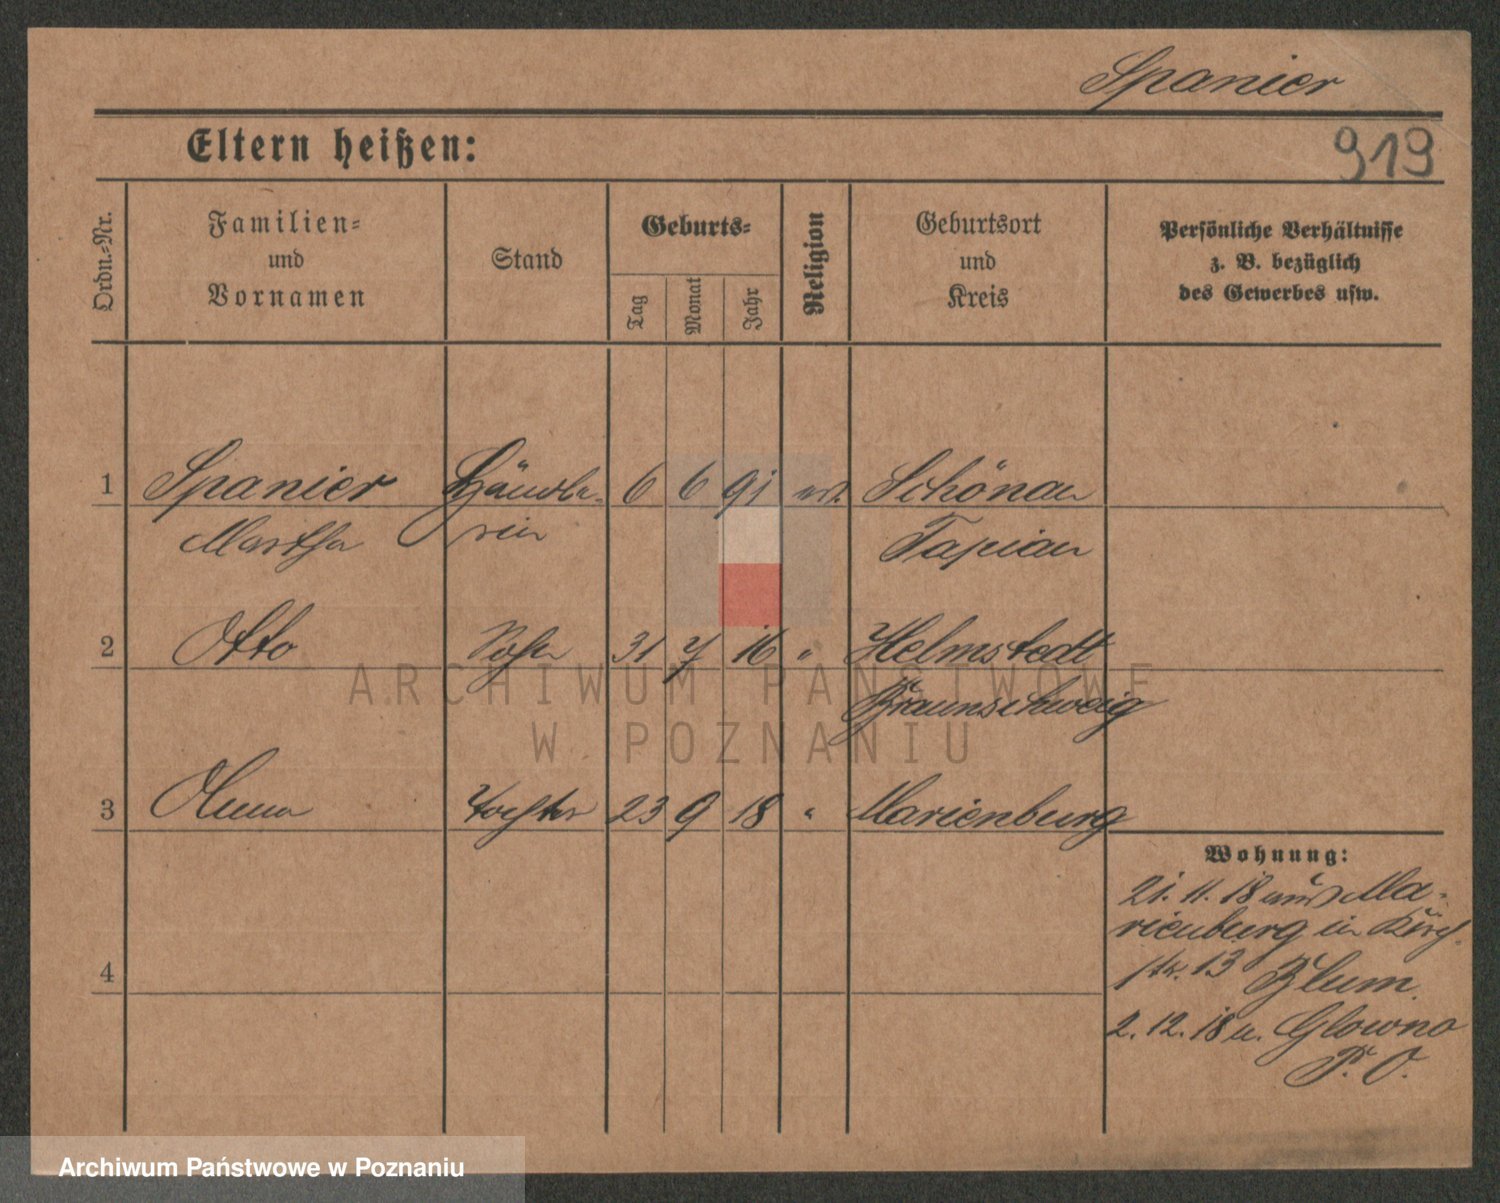 Spanier
Eltern heißen:
919
Ordn.-Nr.
Familien-
und
Vornamen
Stand
Geburts-
Tag
Monat
Jahr
Religion
Geburtsort
und
Kreis
Persönliche Verhältnisse
z. B. bezüglich
des Gewerbes usw.
1 Spanier Händle- 6 6 91 Schönau
Martha rin Tapiau
2 Otto Sohn 31 7 16 " Helmstedt
Braunschweig
3 Tochter 23 9 18 " Marienburg
Wohnung:
21. 11. 18 aus Ma-
rienburg in Kirch-
str. 13 Blum.
4
2. 12. 18 n. Glowno
P. O.
ARCHIWUM PAŃSTWOWE
W POZNANIU
Archiwum Państwowe w Poznaniu